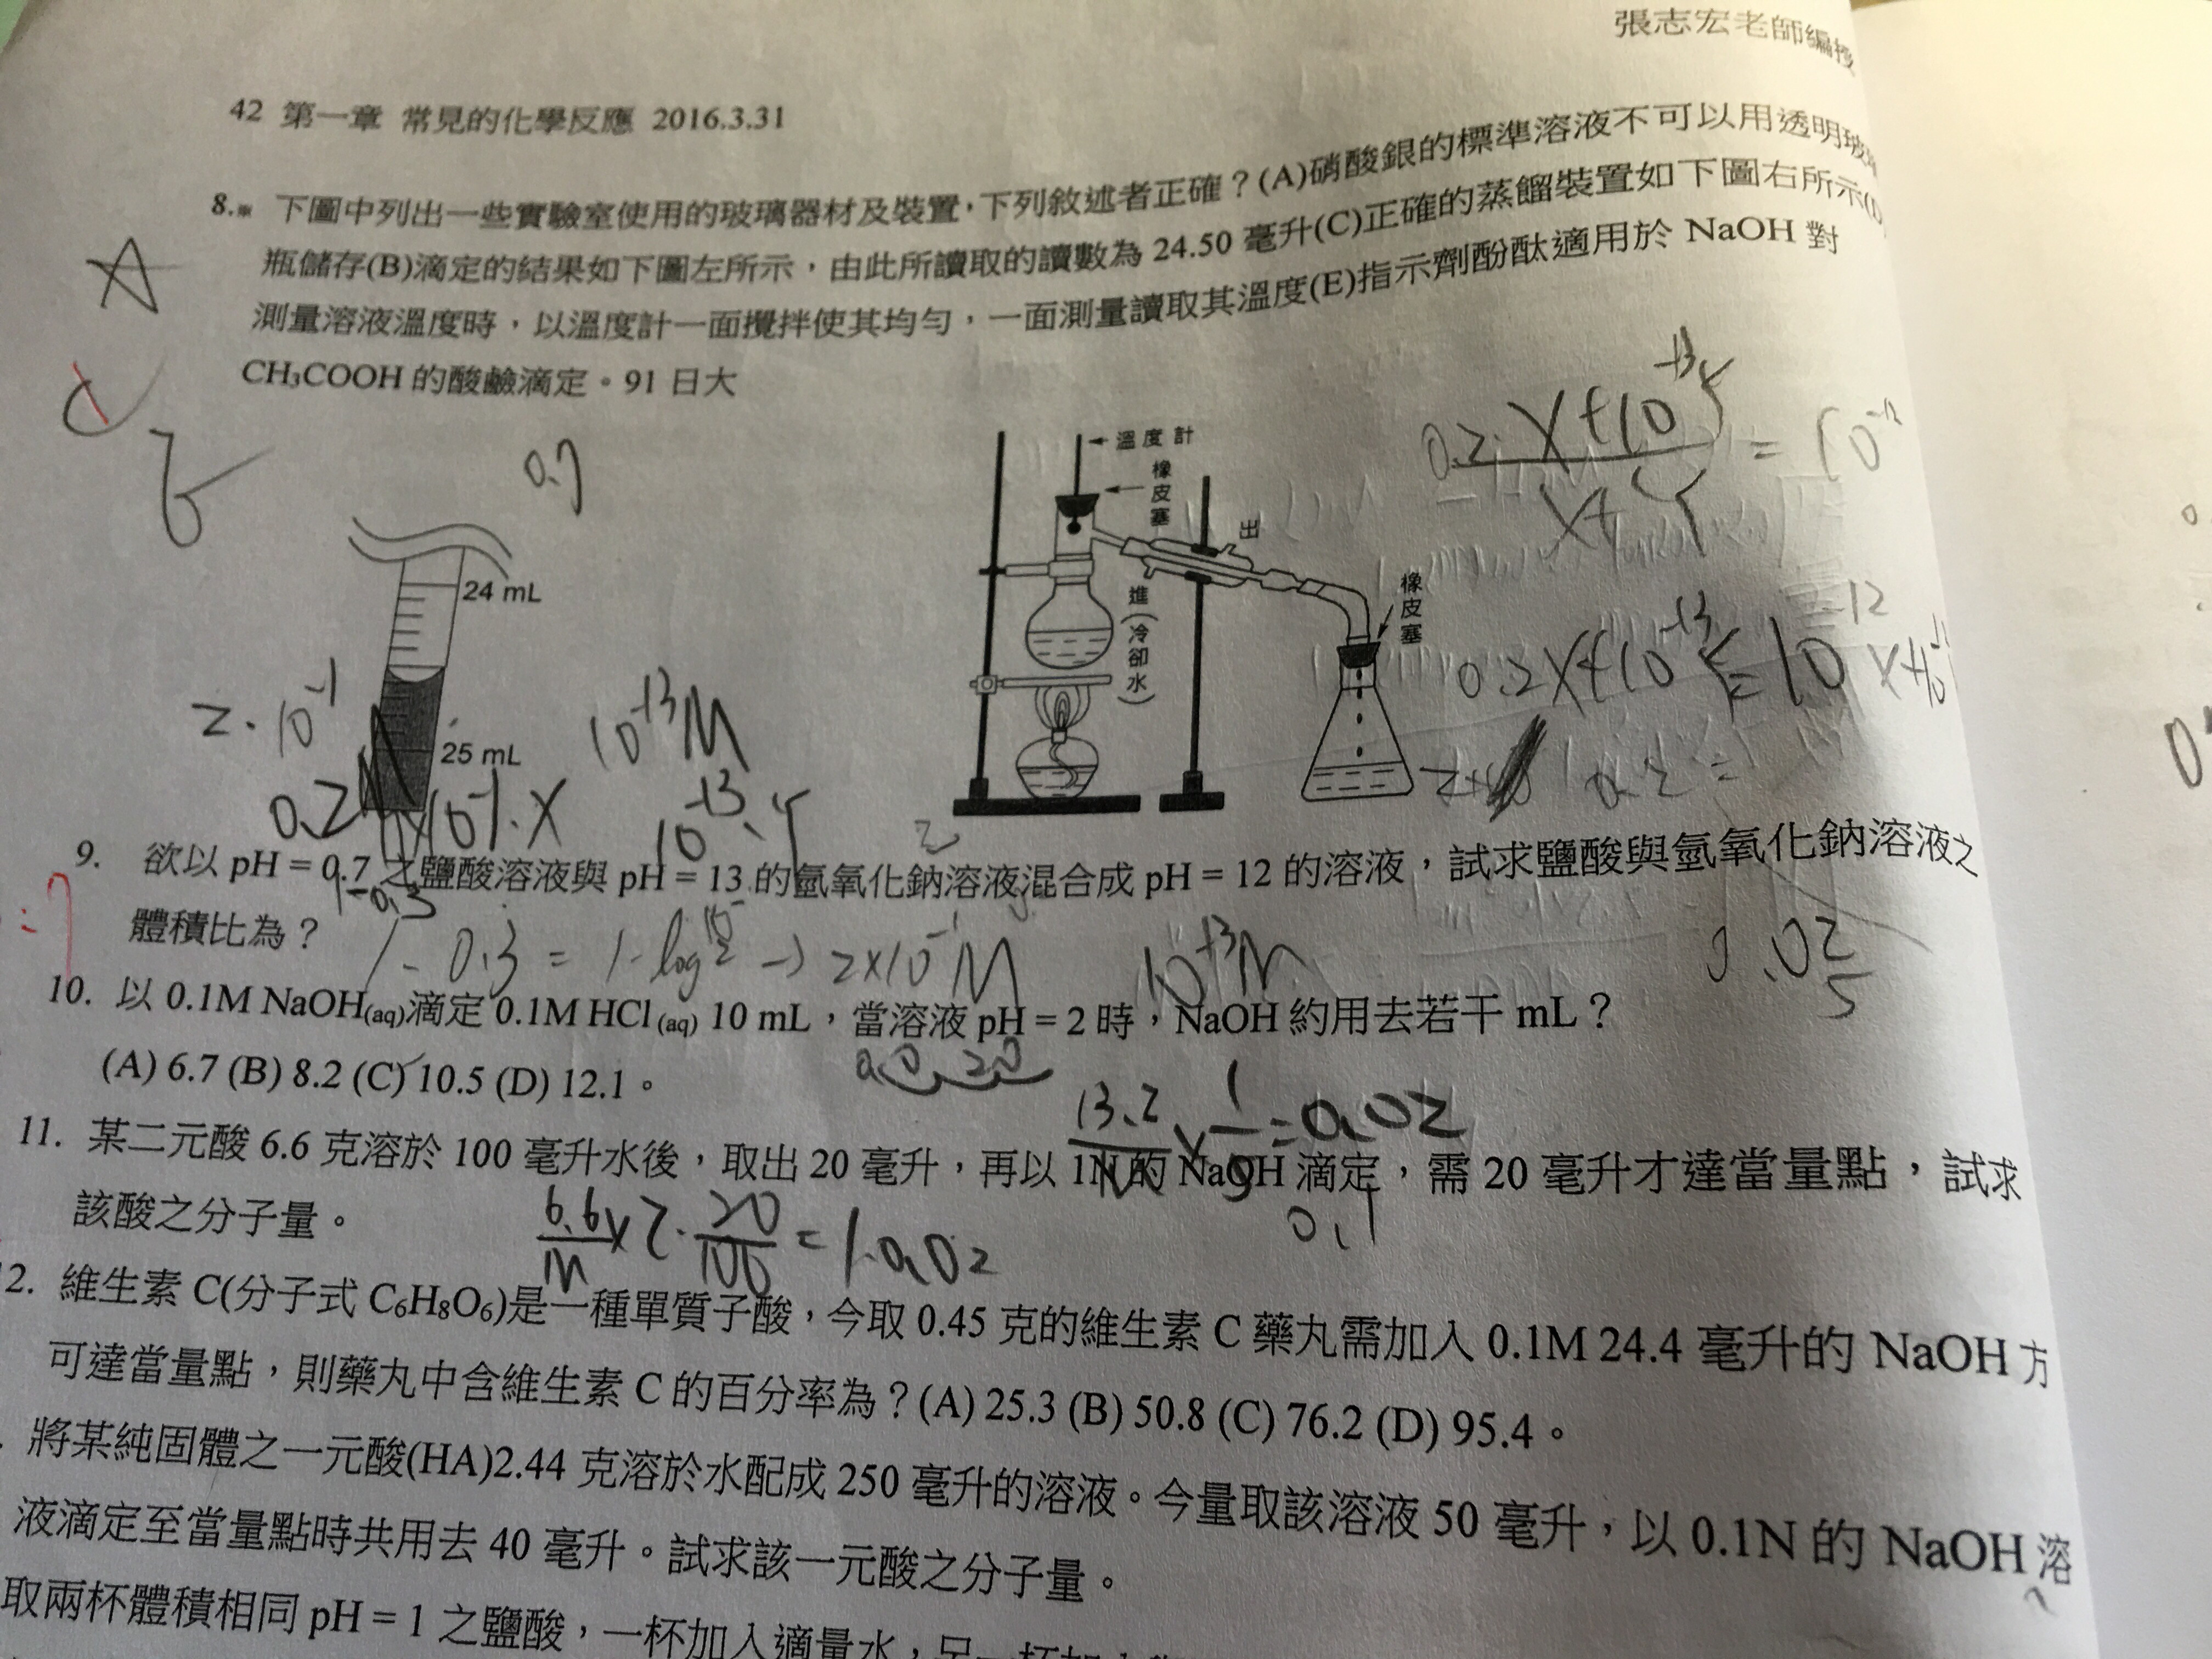 張志宏老師編授
42 第一章 常見的化學反應 2016.3.31
8. 下圖中列出一些實驗室使用的玻璃器材及裝置,下列敘述者正確?(A)硝酸銀的標準溶液不可以用透明玻璃
瓶儲存(B)滴定的結果如下圖左所示,由此所讀取的讀數為 24.50 毫升(C)正確的蒸餾裝置如下圖右所示(D)
測量溶液溫度時,以溫度計一面攪拌使其均勻,一面測量讀取其溫度(E)指示劑酚酞適用於 NaOH 對
CH₃COOH 的酸鹼滴定。91 日大
A
C
E
0.7
24 mL
25 mL
溫度計
橡皮塞
出
進(冷卻水)
橡皮塞
2.10⁻¹
0.2M
10⁻¹.X
10⁻¹³M
10⁻¹³.Y
0.2X+10⁻¹³Y
X+Y
9. 欲以 pH = 0.7 之鹽酸溶液與 pH = 13 的氫氧化鈉溶液混合成 pH = 12 的溶液,試求鹽酸與氫氧化鈉溶液之
體積比為?
1-0.3
1-0.3 = 1-log2 → 2×10⁻¹M
10⁻¹³M
10. 以 0.1M NaOH(aq)滴定 0.1M HCl(aq) 10 mL,當溶液 pH = 2 時,NaOH 約用去若干 mL?
(A) 6.7 (B) 8.2 (C) 10.5 (D) 12.1。
0.02
5
13.2
× 1 = 0.02
11. 某二元酸 6.6 克溶於 100 毫升水後,取出 20 毫升,再以 1N 的 NaOH 滴定,需 20 毫升才達當量點,試求
該酸之分子量。
6.6/M × 2 . 20/100 = 1.0.02
0.1
2. 維生素 C(分子式 C₆H₈O₆)是一種單質子酸,今取 0.45 克的維生素 C 藥丸需加入 0.1M 24.4 毫升的 NaOH 方
可達當量點,則藥丸中含維生素 C 的百分率為?(A) 25.3 (B) 50.8 (C) 76.2 (D) 95.4。
將某純固體之一元酸(HA)2.44 克溶於水配成 250 毫升的溶液。今量取該溶液 50 毫升,以 0.1N 的 NaOH 溶
液滴定至當量點時共用去 40 毫升。試求該一元酸之分子量。
取兩杯體積相同 pH = 1 之鹽酸,一杯加入適量水,另一杯加